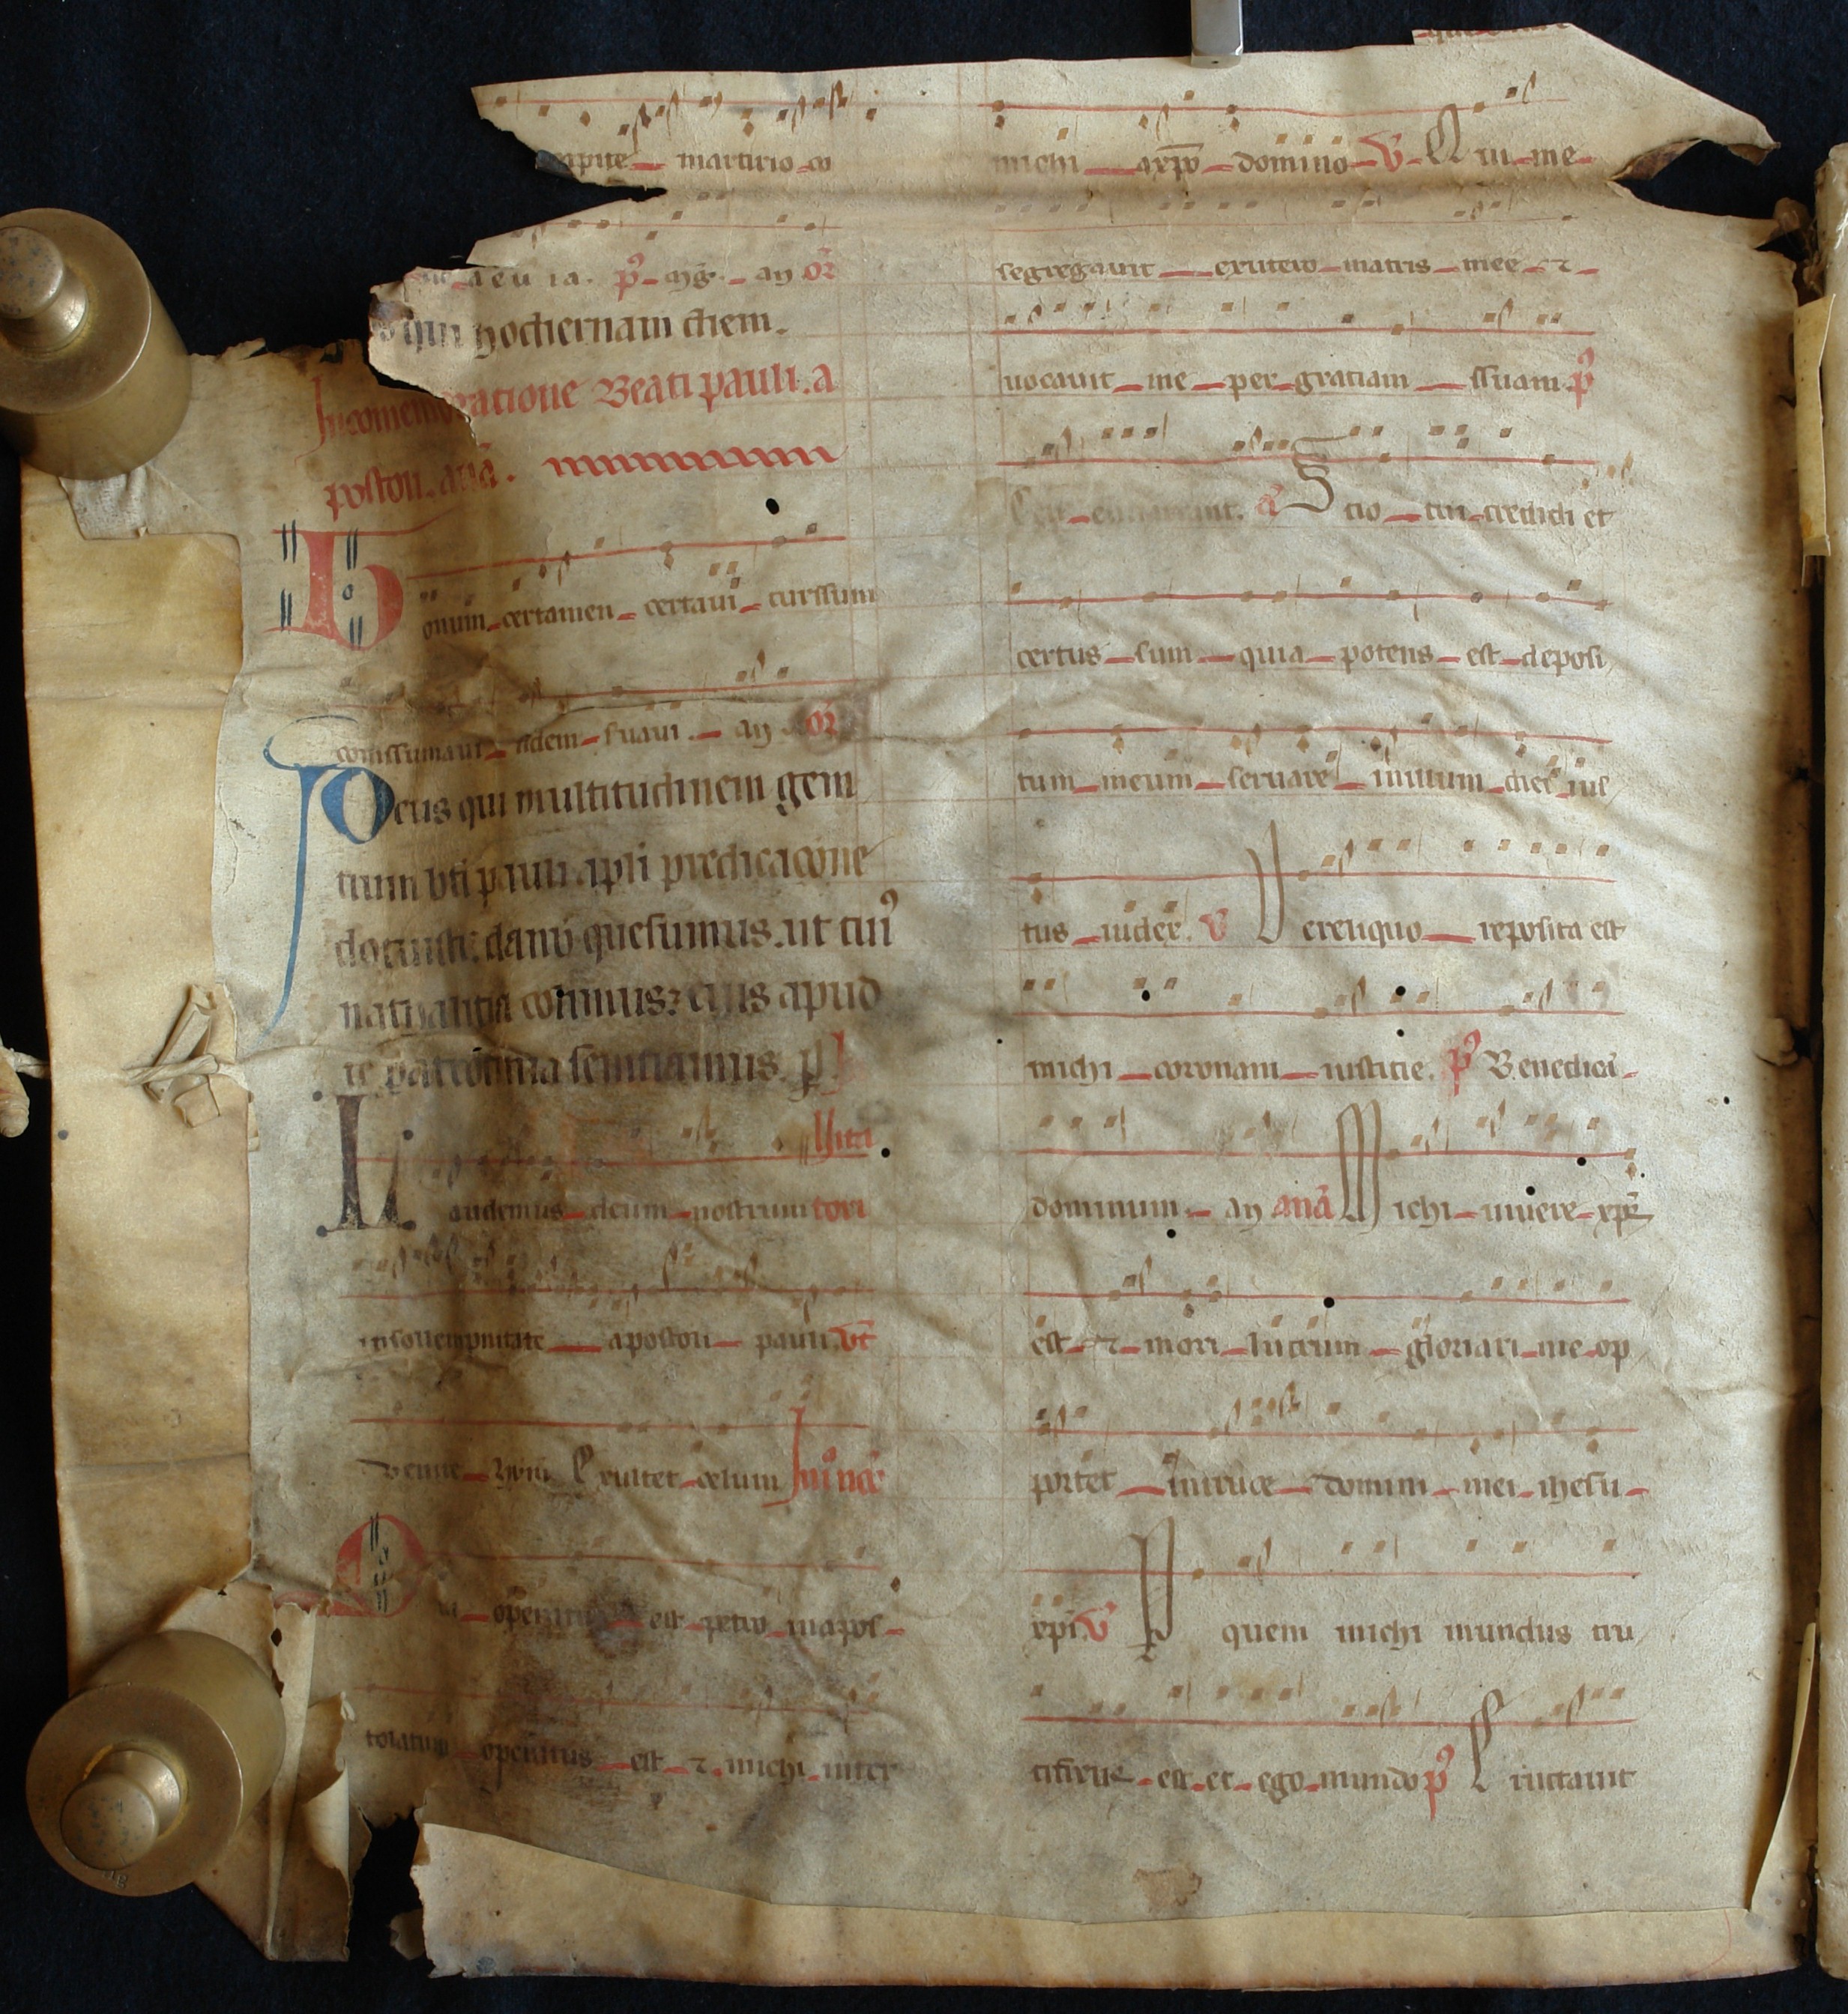 martirio co
a e u ia. p̄s. mg̃. an oř
hodiernam diem.
Incomemoratione Beati pauli. a
postoli. anã.
Bonum certamen certaui curssum
conssumaui fidem suaui. an oř
Deus qui multitudinem gem
tium bti pauli apli predicacõne
docuisti: da nob quesumus. ut cuiꝰ
nathalitia colimus: eius apud
te patrocinia sentiamus. p
Inuita
Laudemus deum nostrum tori
insollempnitate apostoli pauli. vẽ
Venite. ẏm̃. Exultet celum In noc̃
Qui operatus est petro inapos
tolatum operatus est ⁊ michi inter
michi axp̃o domino V Qui me
segregauit exutero matris mee ⁊
uocauit me per gratiam ssuam p̄s
Celi enarrant. a Scio cui credidi et
certus sum quia potens est deposi
tum meum seruare inillum diẽ ius
tus iudex. V Dereliquo reposita est
michi coronam iusticie. p̄s Benedicã
dominum. an anã Michi uiuere xp̃c
est ⁊ mori lucrum gloriari me op
portet incruce domini mei ihesu
xp̃i. V Per quem michi mundus cru
cifixus est et ego mundo p̄s Eructauit